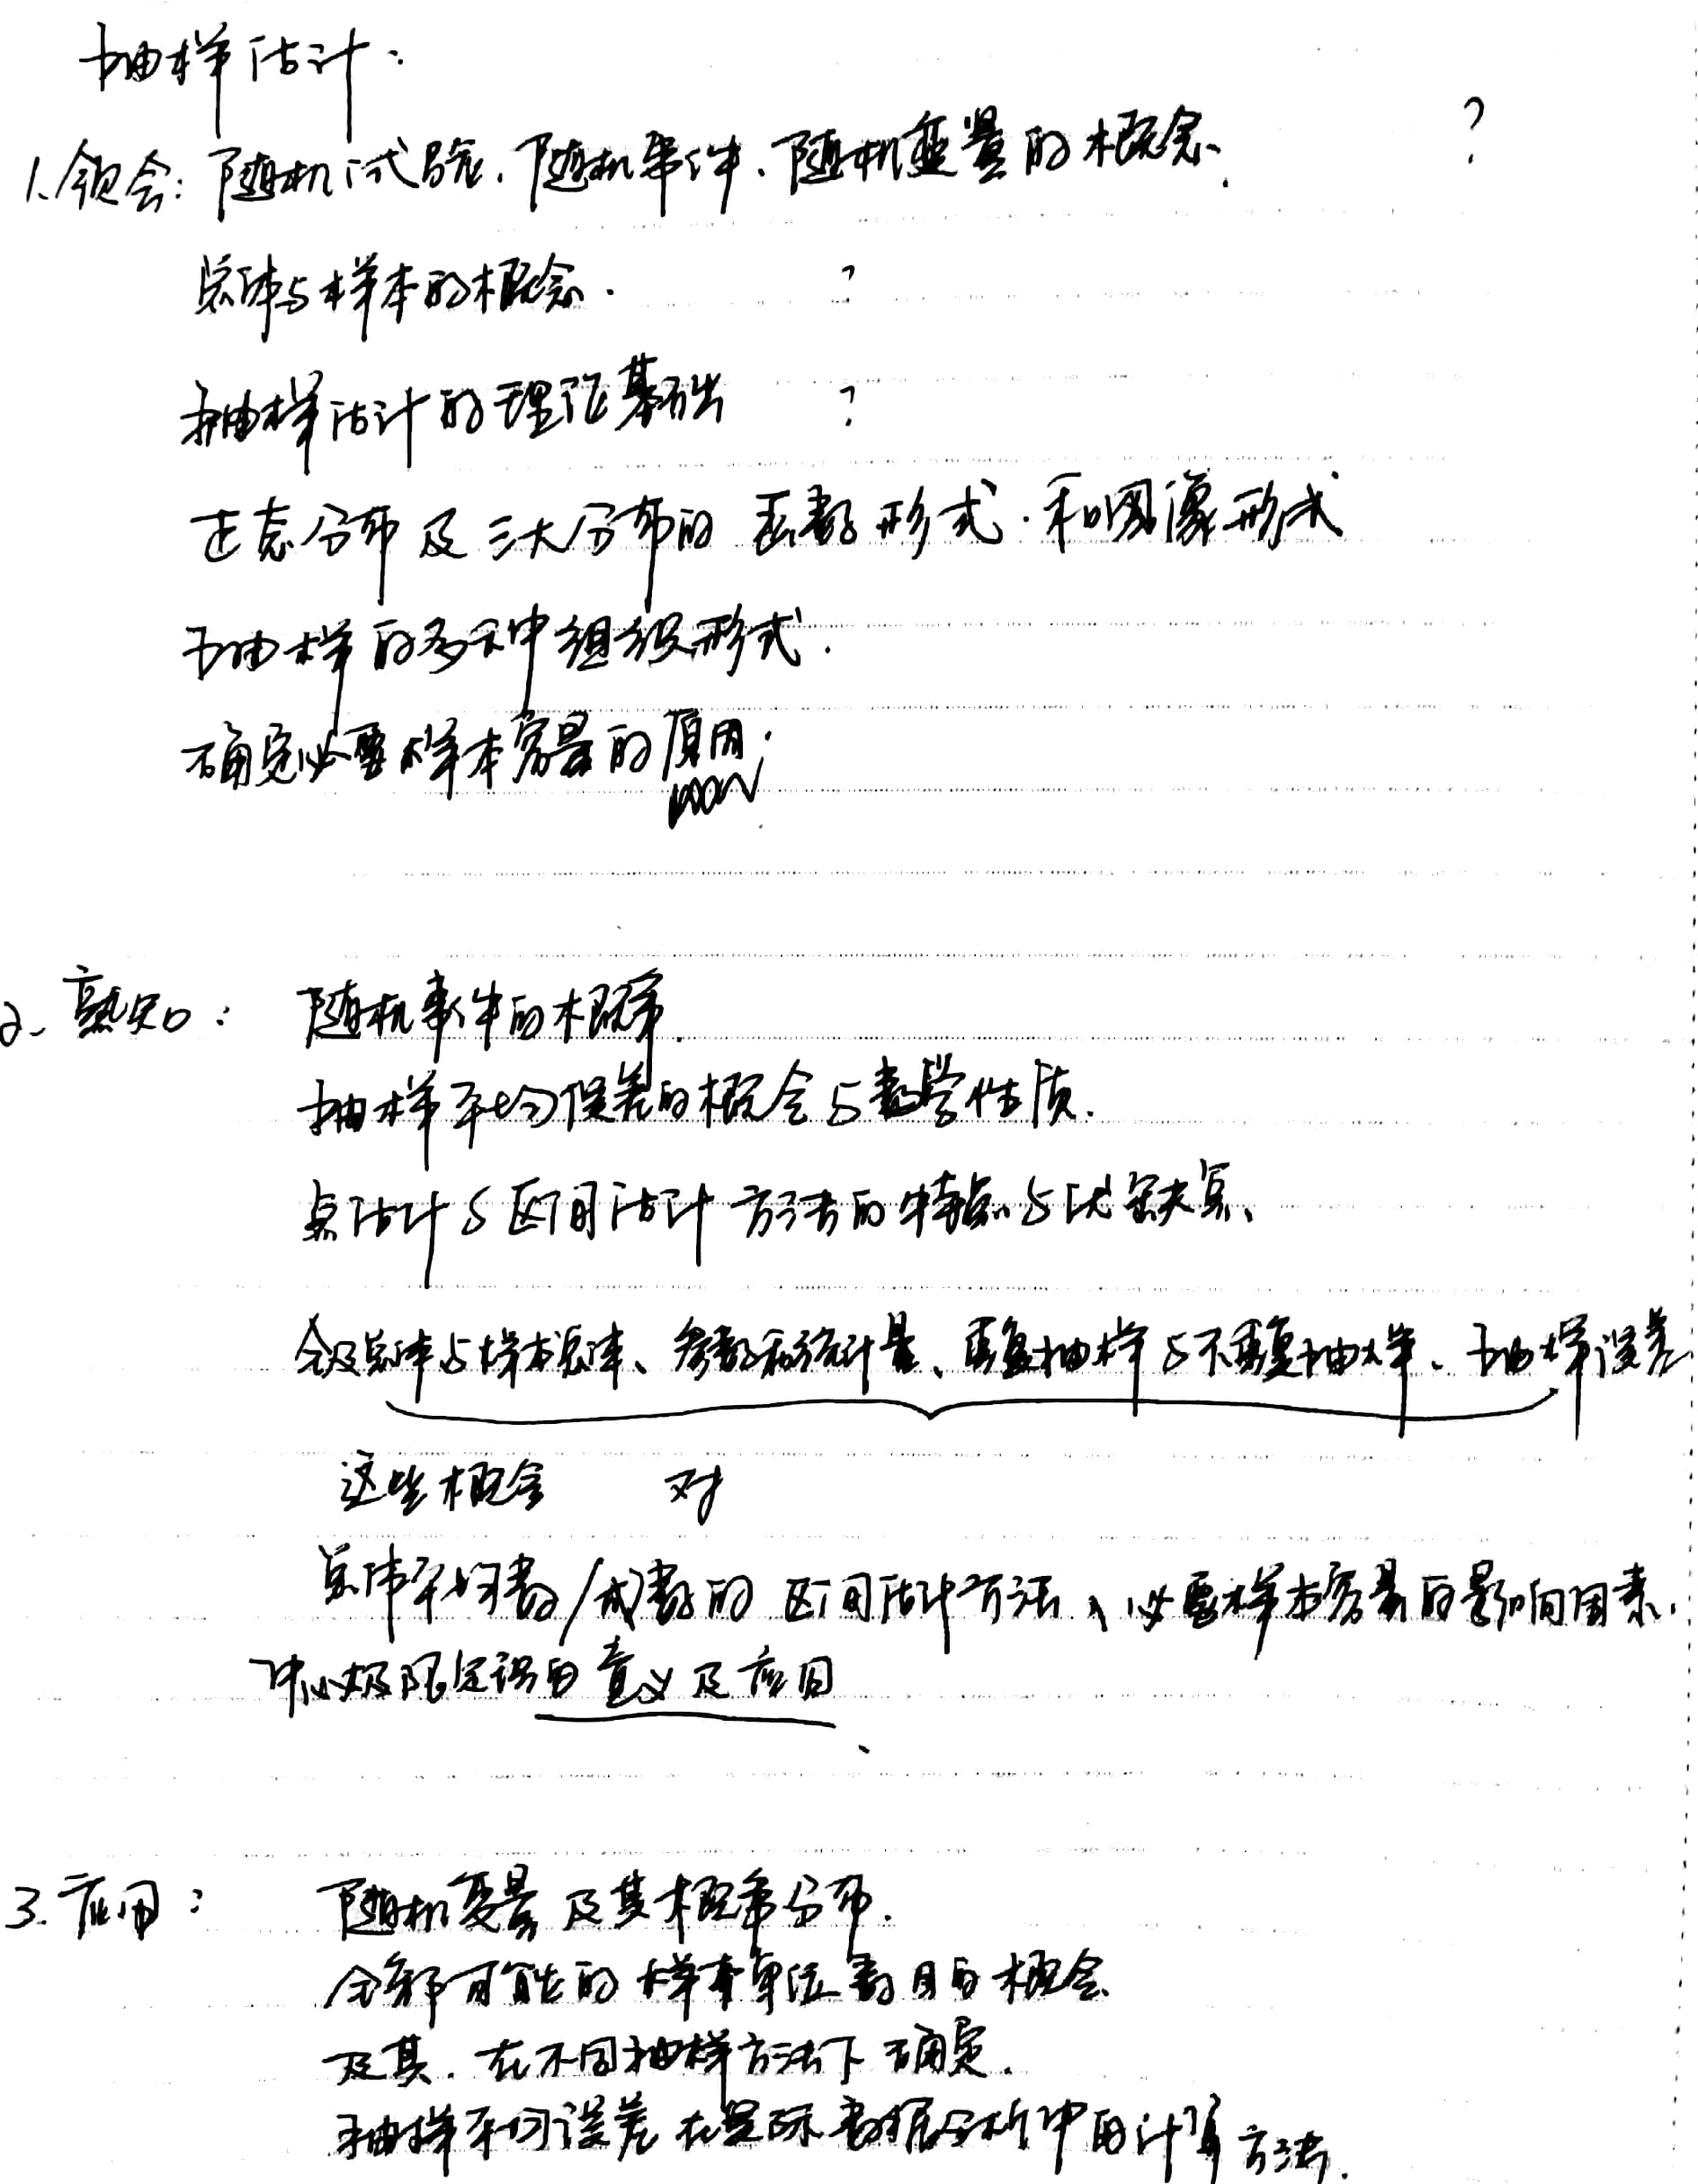 抽样估计:
1.领会: 随机试验、随机事件、随机变量的概念、 ?
总体与样本的概念. ?
抽样估计的理论基础 ?
正态分布及三大分布的函数形式.和图像形式
抽样的多种组织形式.
确定必要样本容量的原因;
2、熟知: 随机事件的概率.
抽样平均误差的概念与数学性质.
点估计与区间估计方法的特点与优缺点、
全及总体与样本总体、参数和统计量、重复抽样与不重复抽样、抽样误差
这些概念 对
总体平均数/成数的区间估计方法、必要样本容量的影响因素.
中心极限定理的意义及应用、
3.应用: 随机变量及其概率分布.
全部可能的样本单位数目的概念
及其.在不同抽样方法下确定.
抽样平均误差在实际数据分析中的计算方法.